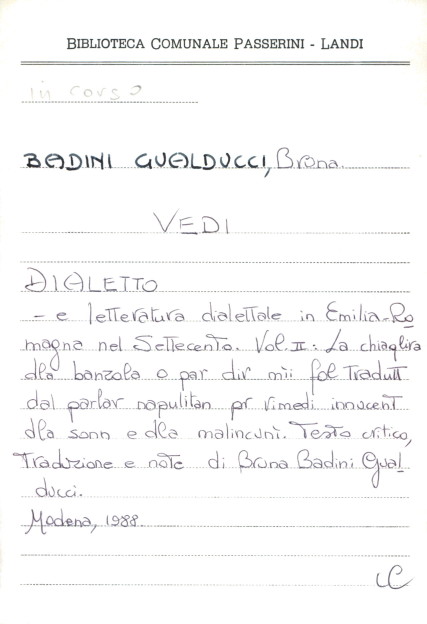 BIBLIOTECA COMUNALE PASSERINI - LANDI
in corso
BADINI GUALDUCCI, Bruna.
VEDI
DIALETTO
- e letteratura dialettale in Emilia-Ro
magna nel Settecento. Vol. II: La chiaglira
dla banzola o par dir mii fol tradutt
dal parlar napulitan pr rimedi innucent
dla sonn e dla malincunì. Testo critico,
traduzione e note di Bruna Badini Gual
ducci.
Modena, 1988.